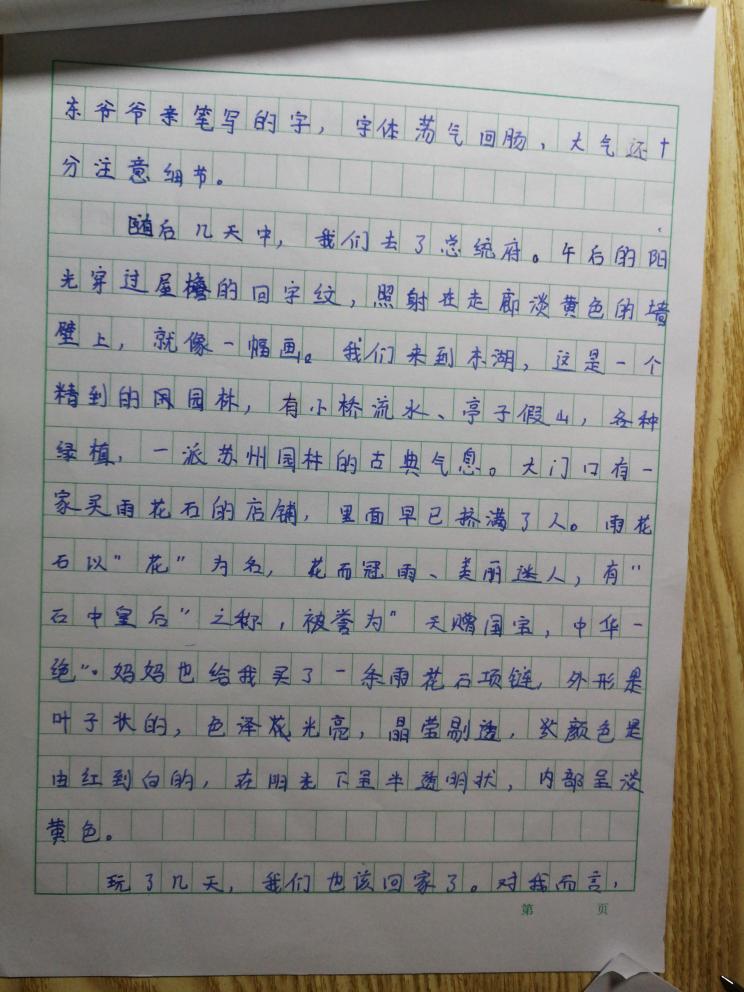 东爷爷亲笔写的字，字体荡气回肠，大气还十
分注意细节。
随后几天中，我们去了总统府。午后的阳
光穿过屋檐的回字纹，照射在走廊淡黄色的墙
壁上，就像一幅画。我们来到木湖，这是一个
精到的风园林，有小桥流水、亭子假山，各种
绿植，一派苏州园林的古典气息。大门口有一
家买雨花石的店铺，里面早已挤满了人。雨花
石以“花”为名，花而冠雨、美丽迷人，有“
石中皇后”之称，被誉为“天赠国宝，中华一
绝”。妈妈也给我买了一条雨花石项链，外形是
叶子状的，色泽光亮，晶莹剔透，颜色是
由红到白的，在阳光下呈半透明状，内部呈淡
黄色。
玩了几天，我们也该回家了。对我而言，
第 页